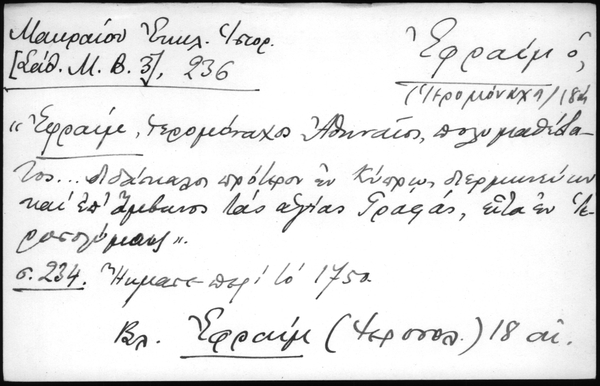 Μακραίου Ἐκκλ. Ἱστορ.
[Σάθ. Μ. Β. 3], 236
Ἐφραὶμ ὁ,
(Ἱερομόναχ/18 αἰ
"Ἐφραὶμ, ἱερομόναχος Ἀθηναῖος, πολυμαθέστα-
τος... διδάσκαλος πρότερον ἐν Κύπρῳ, διερμηνεύων
καὶ ἐπ' ἄμβωνος τὰς ἁγίας Γραφάς, εἶτα ἐν Ἱε-
ροσολύμοις".
σ. 234. Ἤκμασε περὶ τὸ 1750
Βλ. Ἐφραὶμ (Ἱεροσολ.) 18 αἰ.